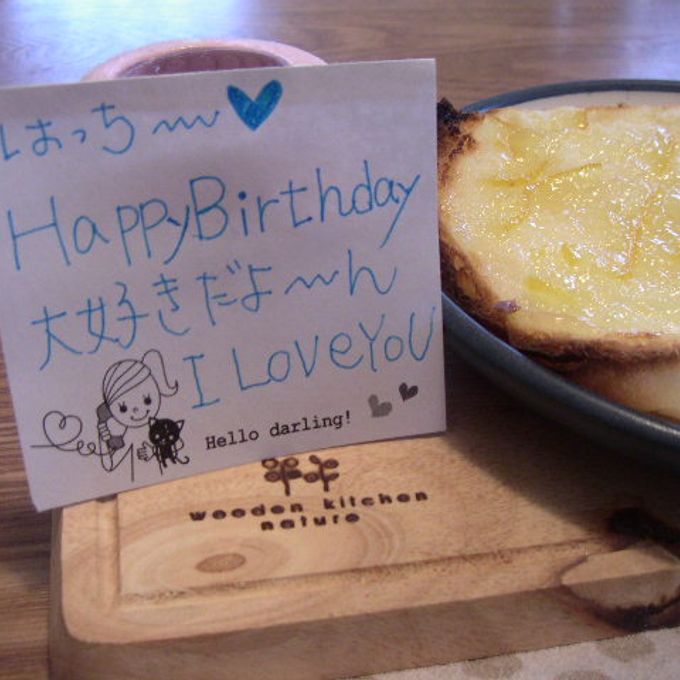 はっち〜
HappyBirthday
大好きだよ〜ん
I LoveYoU
Hello darling!
wooden kitchen
nature